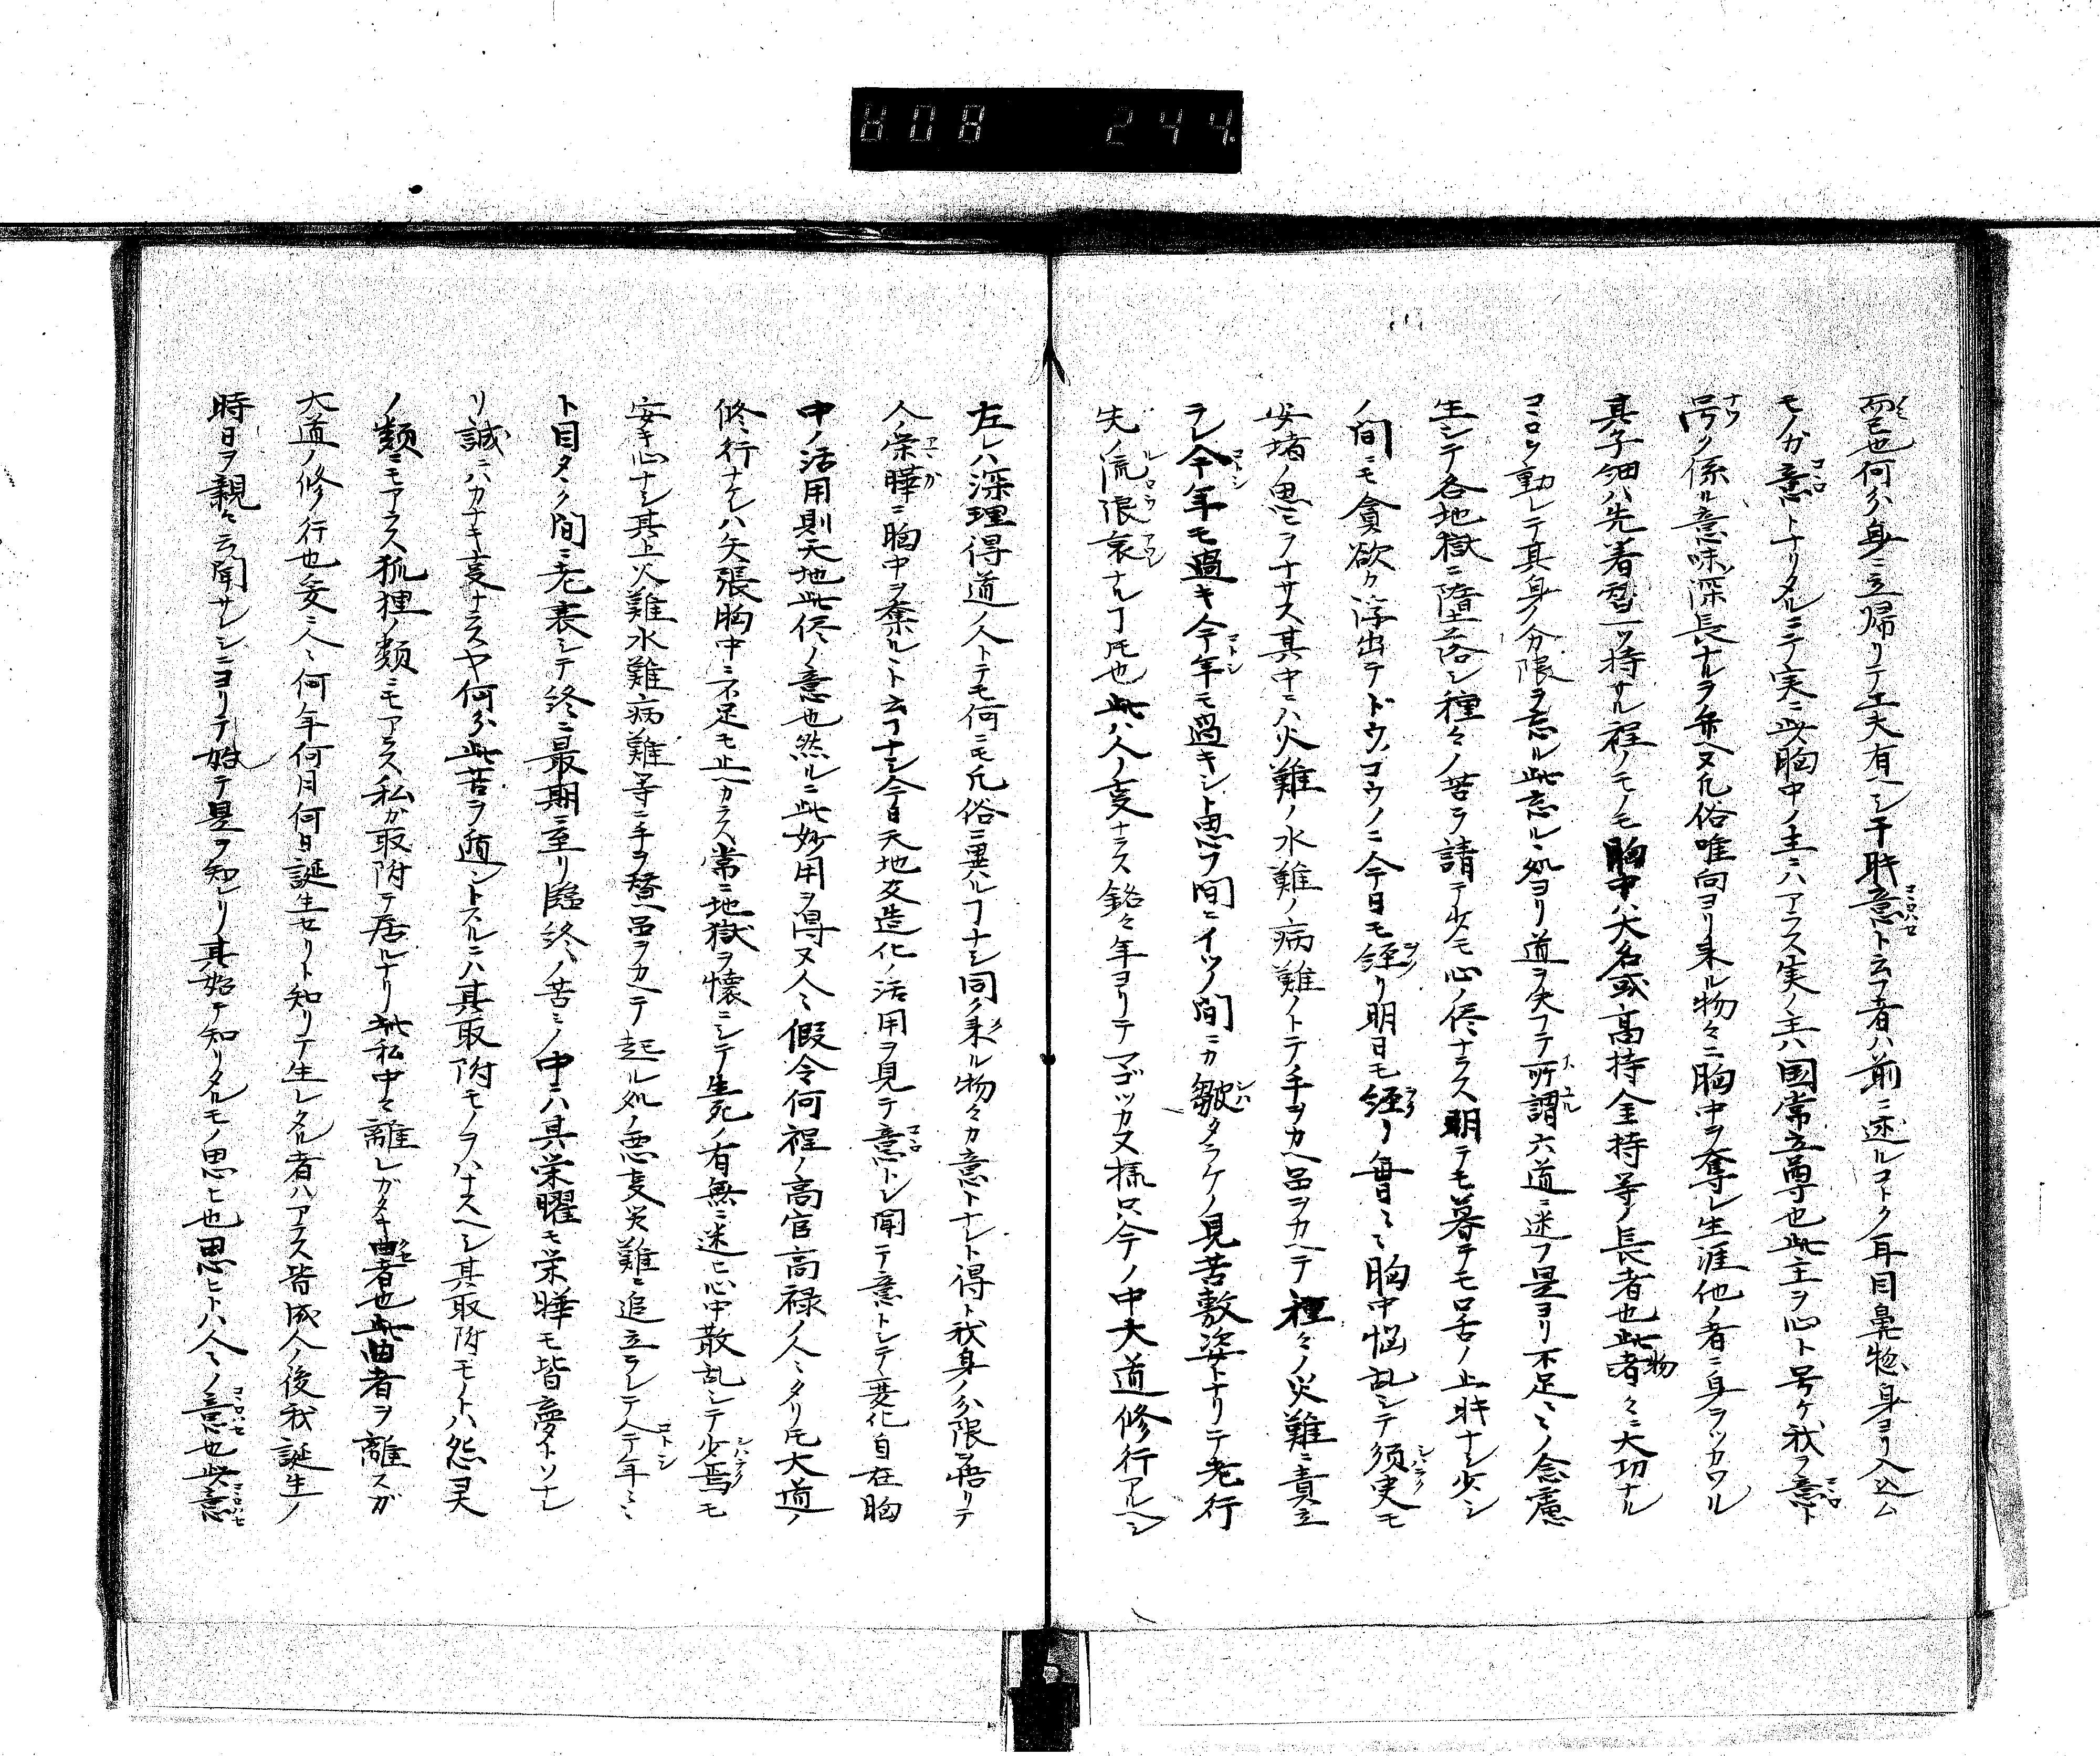 808 244
而已也何分身ニ立帰リテ工夫有ヘシ干時意ト云フ者ハ前ニ述ルコトク耳目鼻惣身ヨリ入込ム
モノガ意トナリタルニテ実ニ此胸中ノ主ニハアラス実ノ主ハ国常立尊也此主ヲ心ト号ケ我ヲ意ト
号ク係ル意味深長ナルヲ弁ヘヌ凡俗唯向ヨリ来ル物々ニ胸中ヲ奪レ生涯他ノ者ニ身ヲツカワル
其子細ハ先着型一ツ持サル程ノモノモ胸中ハ大名或高持金持等ノ長者也此物者々ニ大切ナル
コヽロヲ動レテ其身ノ分限ヲ忘ル此忘ルヽ処ヨリ道ヲ失フテ所謂六道ニ迷フ是ヨリ不足ヽヽノ念慮
生シテ各地獄ニ堕落シ種々ノ苦ヲ請テ少モ心ノ侭ナラス明テモ暮テモ口舌ノ止時ナシ少シ
ノ間ニモ貪欲ケ浮出テドウノコウノニ今日モ経リ明日モ経リ毎日ヽヽ胸中悩乱シテ須臾モ
安堵ノ思ヒヲナサス其中ニハ火難ノ水難ノ病難ノトテ手ヲカヘ品ヲカヘテ種々ノ災難ニ責立
ラレ今年モ過キ今年モ過キシト思フ間ニイツノ間ニカ皺タラケノ見苦敷姿トナリニテ老行
先ノ流浪哀ナル丁圧也此ハ人ノ事ナラス銘々年ヨリテマゴツカヌ様只今ノ中大道修行アルヘシ
左レハ深理得道ノ人トテモ何ニモ凡俗ニ異ルヿナシ同ク来ル物々カ意トナレト得ト我身ノ分限ヲ悟リテ
人ノ栄曄ニ胸中ヲ奪ルヽト云フヿナシ今日天地父造化ノ活用ヲ見テ意トシ聞テ意トシテ変化自在胸
中ノ活用則天地此侭ノ意也然ルニ此妙用ヲ得ヌ人ヽ假令何程ノ高官高禄ノ人ヽタリ圧大道ノ
修行ナケレハ矢張胸中ニ不足モ止ヘカラス常ニ地獄ヲ懐ニシテ生死ノ有無ニ迷ヒ心中散乱シテ少焉モ
安キ心ナシ其上火難水難病難等ニ手ヲ替ヘ品ヲカヘテ起ル処ノ悪事災難ニ追立ラレテ今年ヽヽ
ト目タヽク間ニ老衰シテ終ニ最期ニ至リ臨終ノ苦ミノ中ニハ其栄曜モ栄曄モ皆夢トソナレ
リ誠ニハカナキ事ナラスヤ何分此苦ヲ遁ントスルニハ其取附モノヲハナスヘシ其取附モノトハ怨霊
ノ類ニモアラス狐狸ノ類ニモアラス私カ取附テ居ルナリ此私中々離レガタキ曲者也此曲者ヲ離スガ
大道ノ修行也爰ニ人ヽ何年何月何日誕生セリト知リテ生レタル者ハアラス皆成人ノ後我誕生ノ
時日ヲ親々云聞サレシニヨリテ始テ是ヲ知レリ其始テ知リタルモノ思ヒ也思ヒトハ人々ノ意也此意